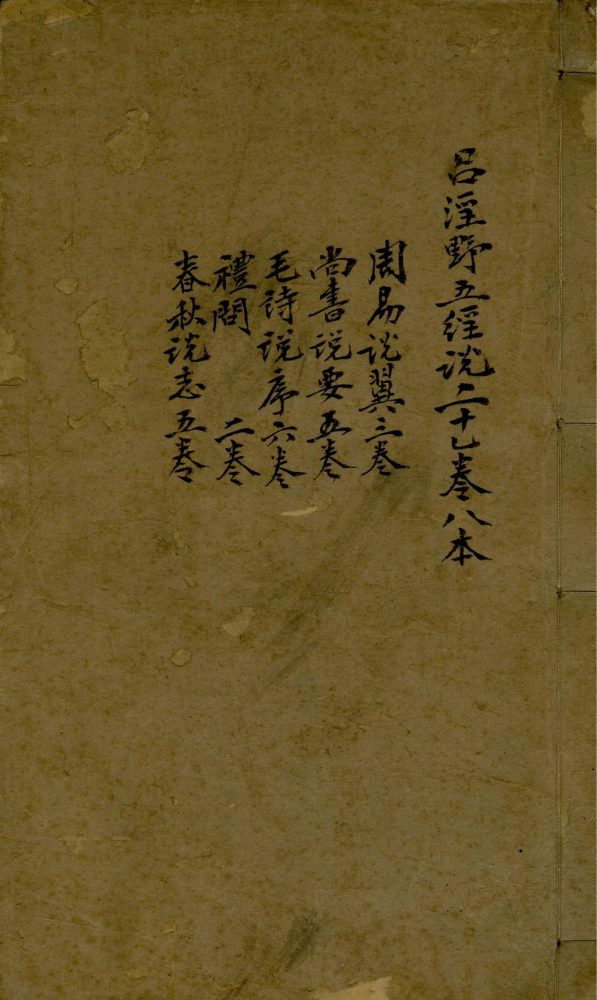 吕涇野五经说二十乙卷八本
周易说翼三卷
尚書说要五卷
毛诗说序六卷
禮問　二卷
春秋说志五卷